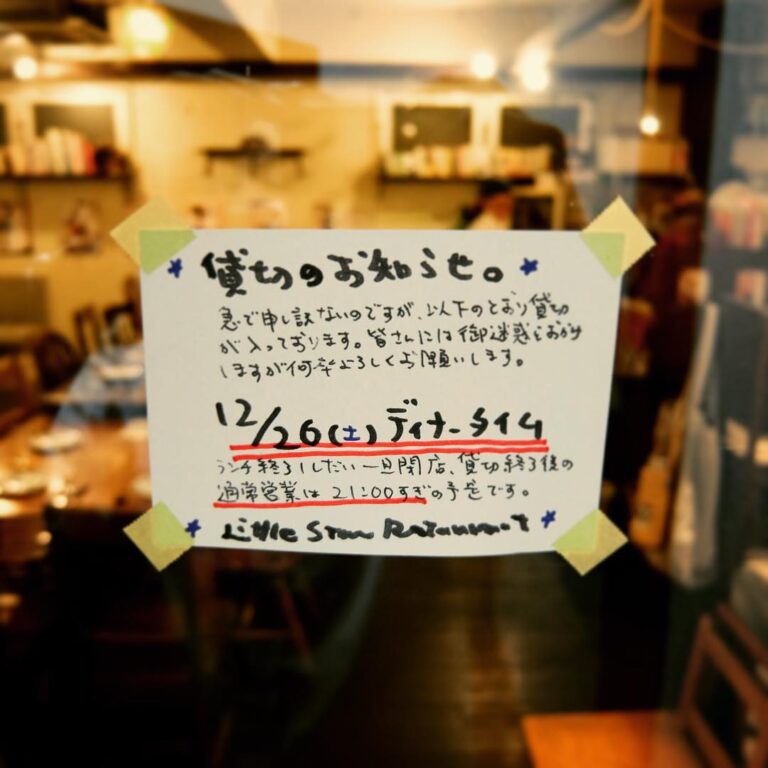 ★貸切のお知らせ。★
急で申し訳ないのですが、以下のとおり貸切
が入っております。皆さんには御迷惑をおかけ
しますが何卒よろしくお願いします。
12/26(土)ディナータイム
ランチ終了しだい一旦閉店、貸切終了後の
通常営業は21:00すぎの予定です。
★Little Star Restaurant★